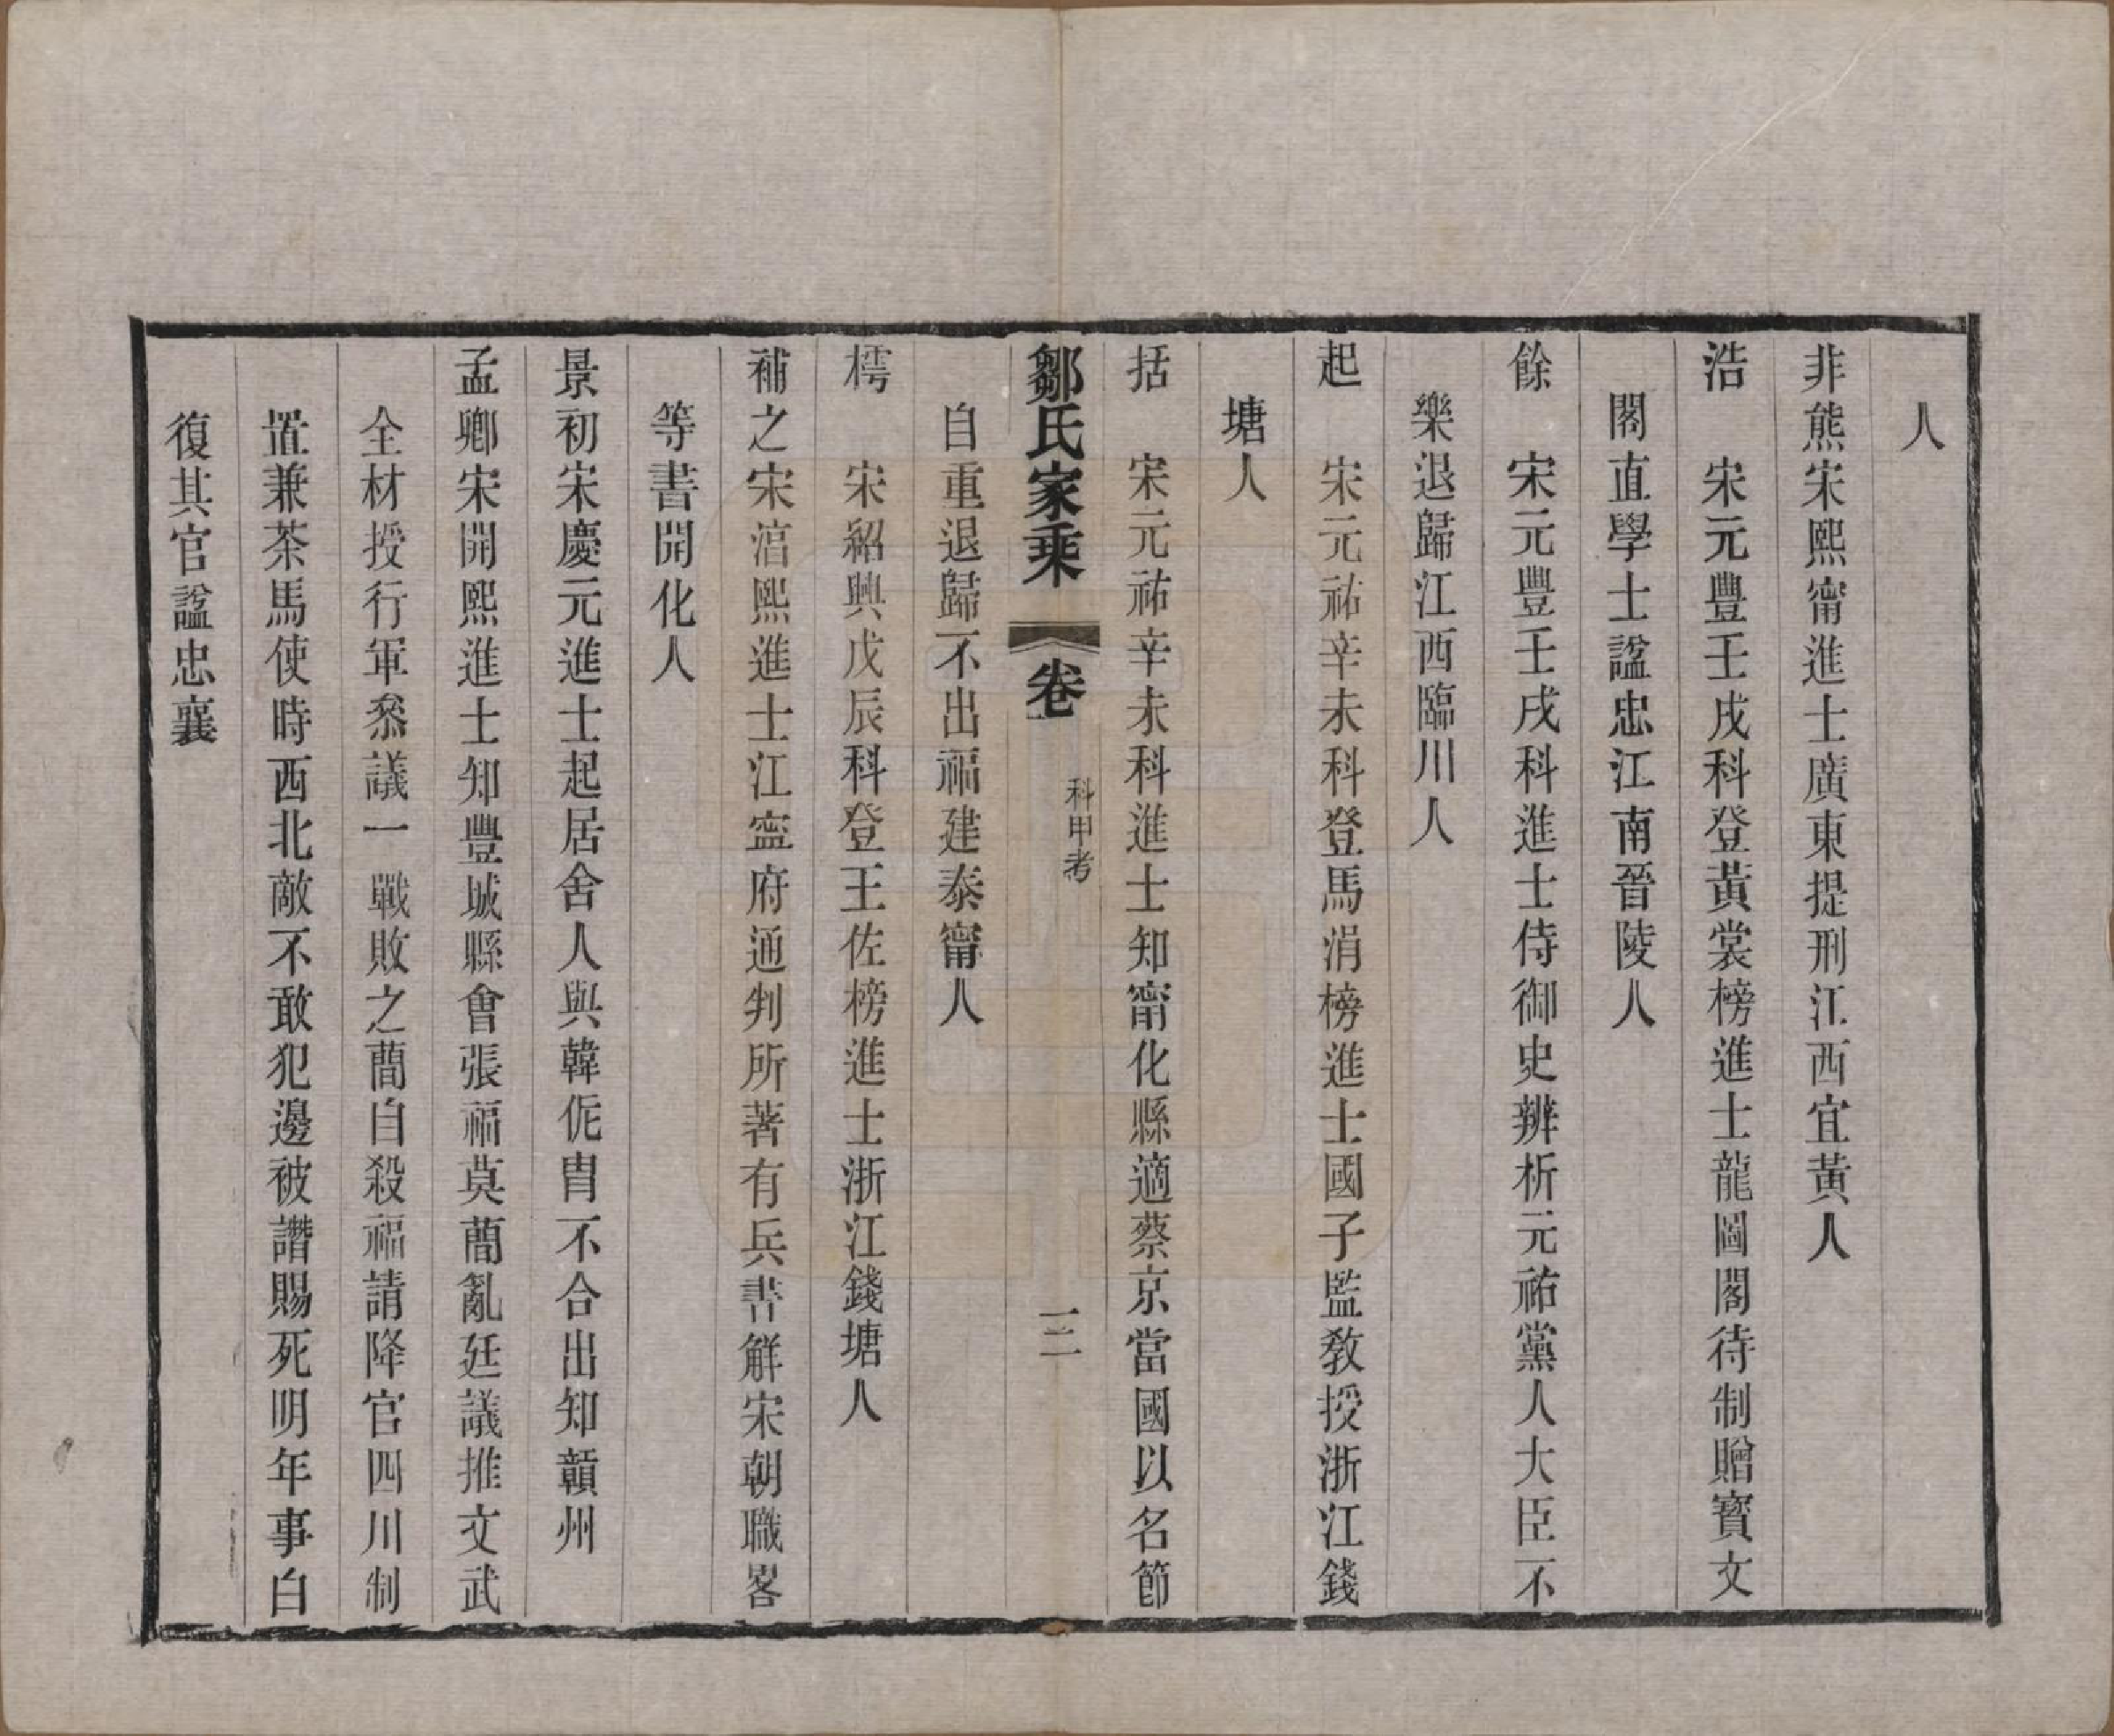 人
非熊宋熙甯進士廣東提刑江西宜黃人
浩　宋元豐壬戌科登黃裳榜進士龍圖閣待制贈寳文
閣直學士諡忠江南晉陵人
餘　宋元豐壬戌科進士侍御史辨析元祐黨人大臣不
樂退歸江西臨川人
起　宋元祐辛未科登馬涓榜進士國子監敎授浙江錢
塘人
括　宋元祐辛未科進士知甯化縣適蔡京當國以名節
自重退歸不出福建泰甯人
鄒氏家乘　卷一　科甲考　三
樗　宋紹興戊辰科登王佐榜進士浙江錢塘人
補之宋湻熙進士江寍府通判所著有兵書解宋朝職畧
等書開化人
景初宋慶元進士起居舍人與韓侂冑不合出知贑州
孟卿宋開熙進士知豐城縣會張福莫蕳亂廷議推文武
全材授行軍叅議一戰敗之蕳自殺福請降官四川制
置兼茶馬使時西北敵不敢犯邊被譖賜死明年事白
復其官諡忠襄